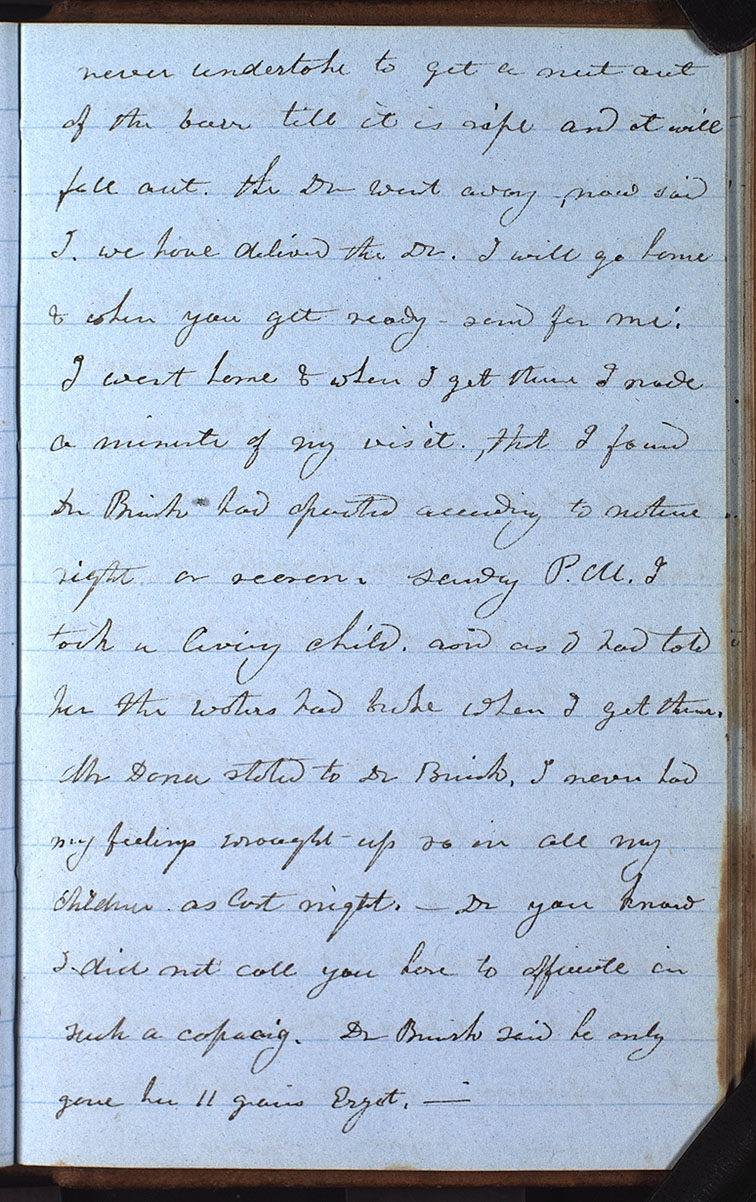 never undertoke to get a nut out
of the burr till it is ripe and it will
fall out. the Dr went away now said
I. we have deliverd the Dr. I will go home
& when you get ready - send for me.
I went home & when I get there I made
a minute of my visit. that I found
Dr Brush had operated according to nature
right or reason. sunday P.M. I
took a living child. and as I had told
her the waters had broke when I get there.
Mr Dana stated to Dr Brush, I never had
my feelings wrought up so in all my
Children as last night. — Dr you know
I did not call you here to officiate in
such a capacity. Dr Brush said he only
gave her 11 grains Ergot. —